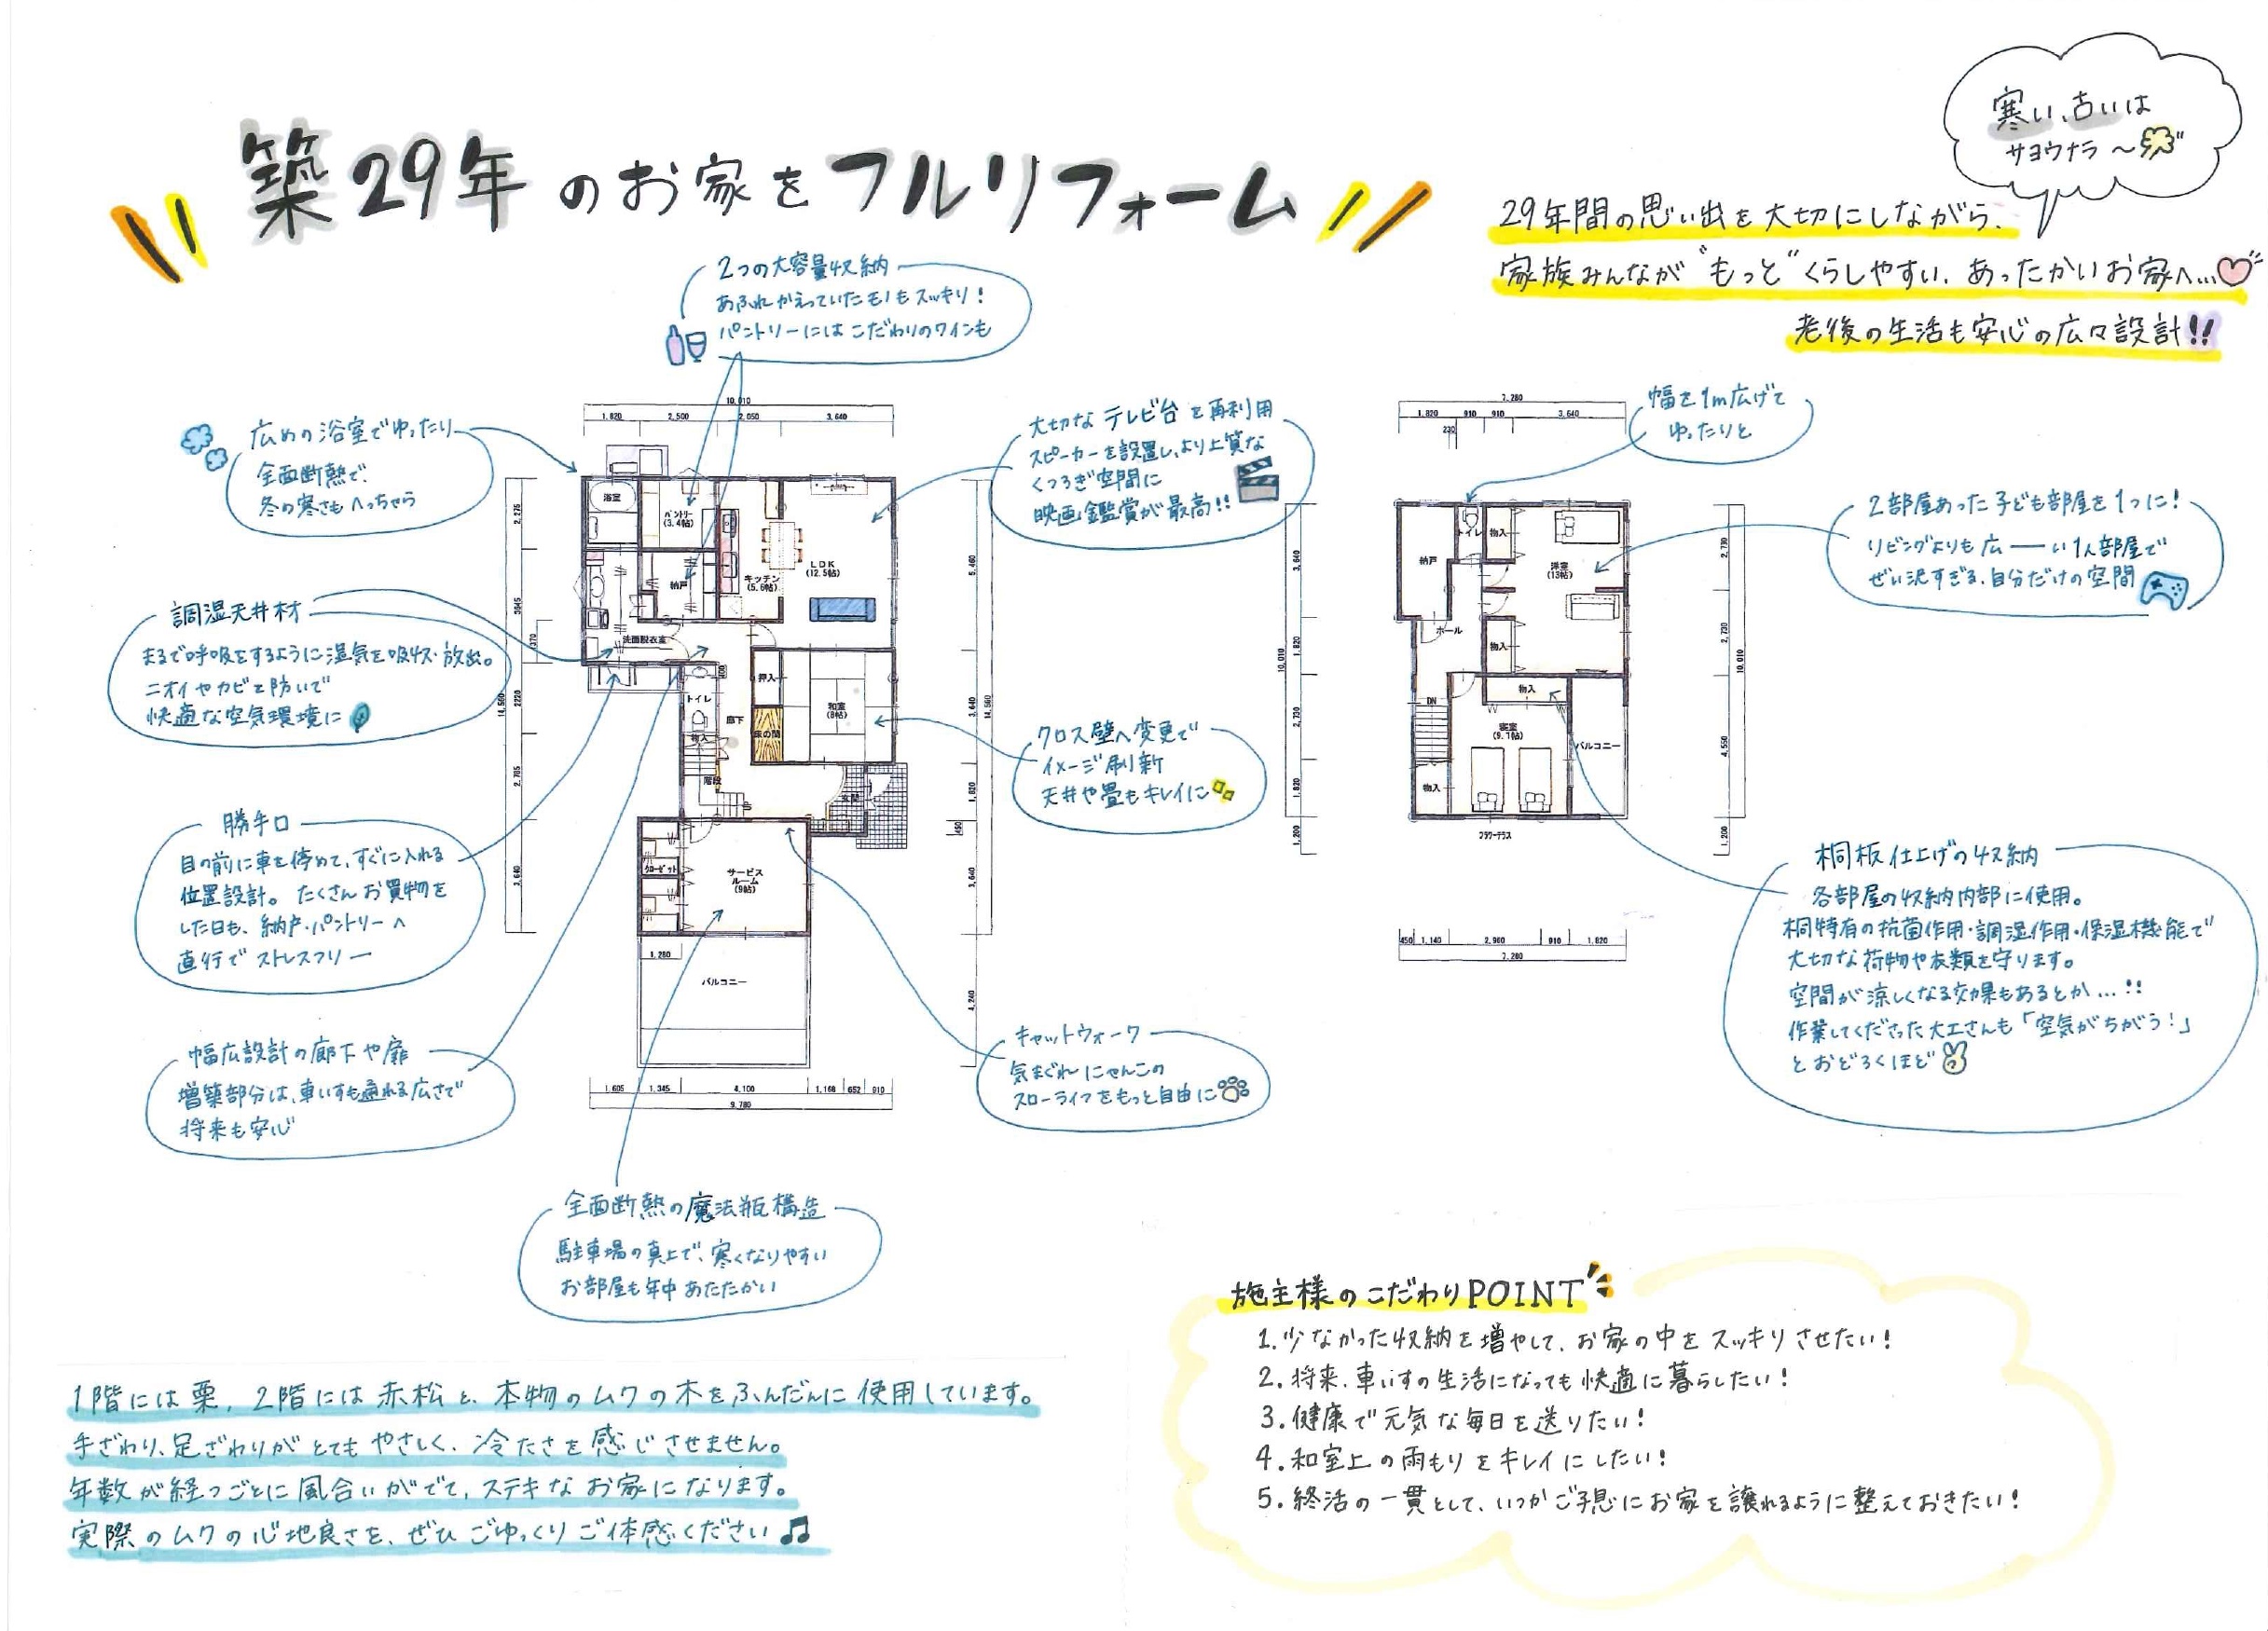 築29年のお家をフルリフォーム
寒い、古いは
サヨウナラ〜
29年間の思い出を大切にしながら、
家族みんなが"もっと"くらしやすい、あったかいお家へ...
老後の生活も安心の広々設計!!
2つの大容量収納
あふれかえっていたモノもスッキリ!
パントリーにはこだわりのワインも
広めの浴室でゆったり
全面断熱で、
冬の寒さもへっちゃら
調湿天井材
まるで呼吸をするように湿気を吸収・放出。
ニオイやカビを防いで
快適な空気環境に
勝手口
目の前に車を停めて、すぐに入れる
位置設計。たくさんお買物を
した日も、納戸・パントリーへ
直行でストレスフリー
幅広設計の廊下や扉
増築部分は、車いすも通れる広さで
将来も安心
全面断熱の魔法瓶構造
駐車場の真上で、寒くなりやすい
お部屋も年中あたたかい
大切なテレビ台を再利用
スピーカーを設置し、より上質な
くつろぎ空間に
映画鑑賞が最高!!
クロス壁へ変更で
イメージ刷新
天井や畳もキレイに
キャットウォーク
気まぐれにゃんこの
スローライフをもっと自由に
10,010
1,820 2,500 2,050 3,640
浴室
パントリー
(3.4帖)
納戸
キッチン
(5.6帖)
LDK
(12.5帖)
洗面脱衣室
トイレ
物入
廊下
階段
押入
床の間
和室
(8帖)
玄関
クローゼット
サービス
ルーム
(9帖)
1,280
バルコニー
2,275
3,640
14,560
5,460
3,640
1,820
3,640
4,240
14,560
1,605 1,345 4,100 1,168 652 910
9,780
幅を1m広げて
ゆったりと
2部屋あった子ども部屋を1つに!
リビングよりも広――い1人部屋で
ぜい沢すぎる、自分だけの空間
桐板仕上げの収納
各部屋の収納内部に使用。
桐特有の抗菌作用・調湿作用・保湿機能で
大切な荷物や衣類を守ります。
空間が涼しくなる効果もあるとか...!!
作業してくださった大工さんも「空気がちがう!」
とおどろくほど
7,280
1,820 910 910 3,640
230
納戸
トイレ
物入
洋室
(13帖)
ホール
物入
DN
物入
寝室
(9.1帖)
バルコニー
物入
フラワーテラス
3,640
1,820
2,730
1,820
1,200
10,010
2,730
2,730
4,550
1,200
10,010
450 1,140 2,960 910 1,820
7,280
施主様のこだわりPOINT
1.少なかった収納を増やして、お家の中をスッキリさせたい!
2.将来、車いすの生活になっても快適に暮らしたい!
3.健康で元気な毎日を送りたい!
4.和室上の雨もりをキレイにしたい!
5.終活の一貫として、いつかご子息にお家を譲れるように整えておきたい!
1階には栗、2階には赤松と、本物のムクの木をふんだんに使用しています。
手ざわり、足ざわりがとてもやさしく、冷たさを感じさせません。
年数が経つごとに風合いがでて、ステキなお家になります。
実際のムクの心地良さを、ぜひごゆっくりご体感ください